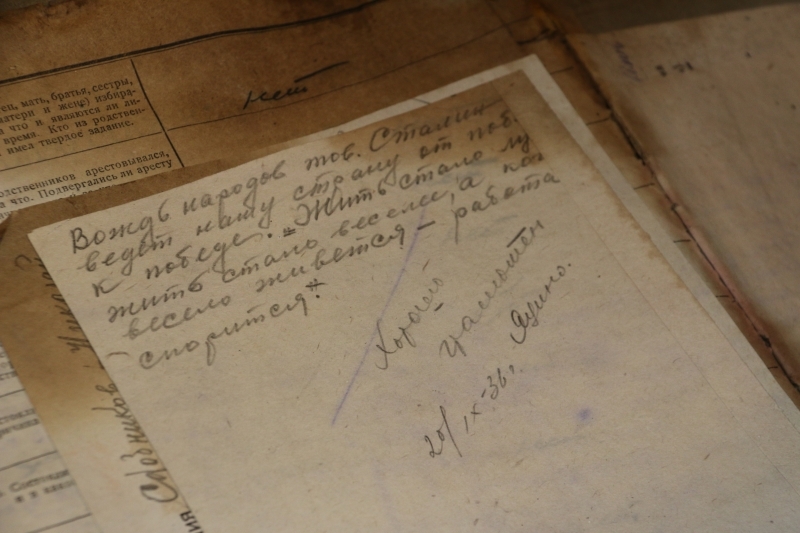 ец, мать, братья, сестры,
матери и жене) избира-
а что и являются ли ли-
время. Кто из родствен-
имел твердое задание.
нет
одственников арестовывался,
за что. Подвергались ли аресту
Вождь народов тов. Сталин
ведет нашу страну от поб.
к победе. „Жить стало лу
жить стало веселей, а ког
весело живется – работа
спорится."
Хорошо
грамотен
20/IX-36г.